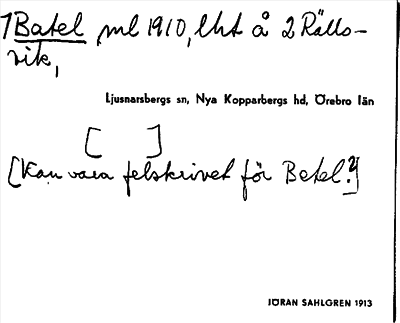 1 Batel, ml 1910, lht å 2 Rälls-
vik,
Ljusnarsbergs sn, Nya Kopparbergs hd, Örebro län
[ ]
[Kan vara felskrivet för Betel?]
JÖRAN SAHLGREN 1913